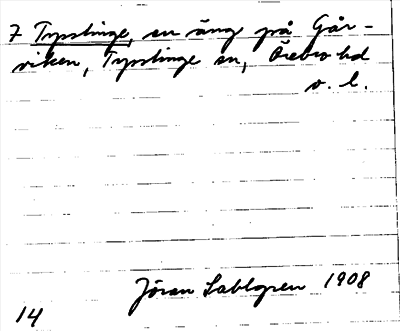 7 Tysslinge, en äng på Går-
viken, Tysslinge sn, Örebro hd
v. l.
Jöran Sahlgren 1908
14